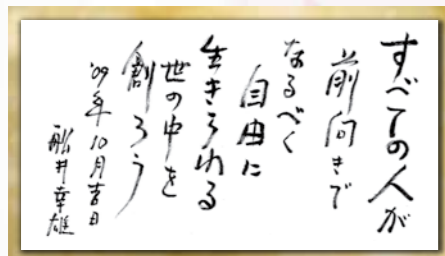 すべての人が
前向きで
なるべく
自由に
生きられる
世の中を
創ろう
'09年10月吉日
舩井幸雄